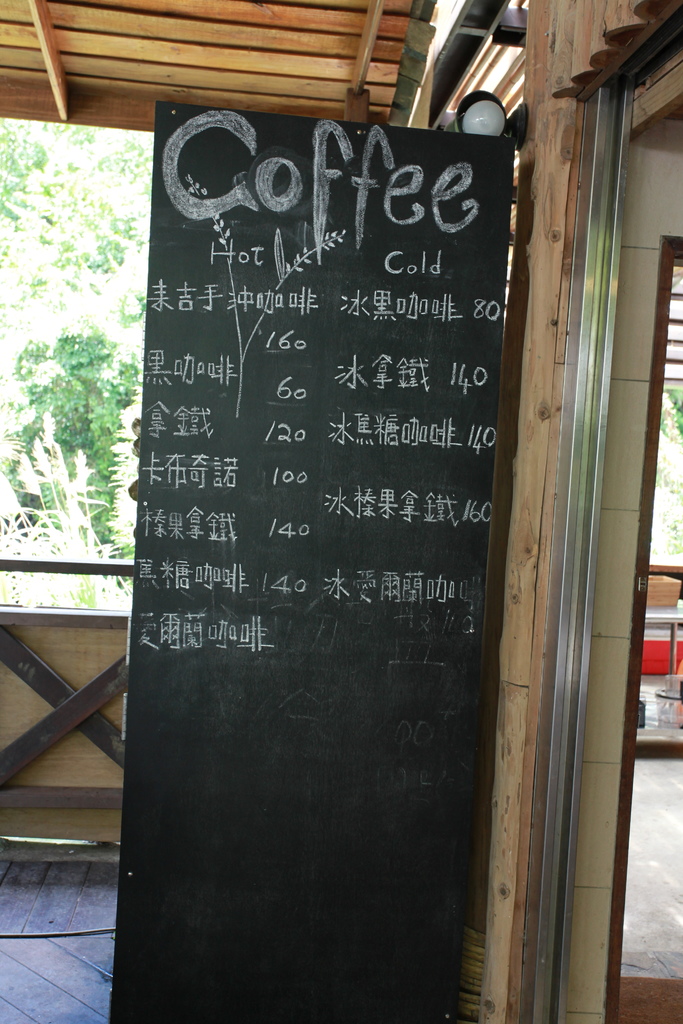 Coffee
Hot
Cold
耒吉手沖咖啡
160
黑咖啡 60
拿鐵 120
卡布奇諾 100
榛果拿鐵 140
焦糖咖啡 140
愛爾蘭咖啡
冰黑咖啡 80
冰拿鐵 140
冰焦糖咖啡 140
冰榛果拿鐵 160
冰愛爾蘭咖啡